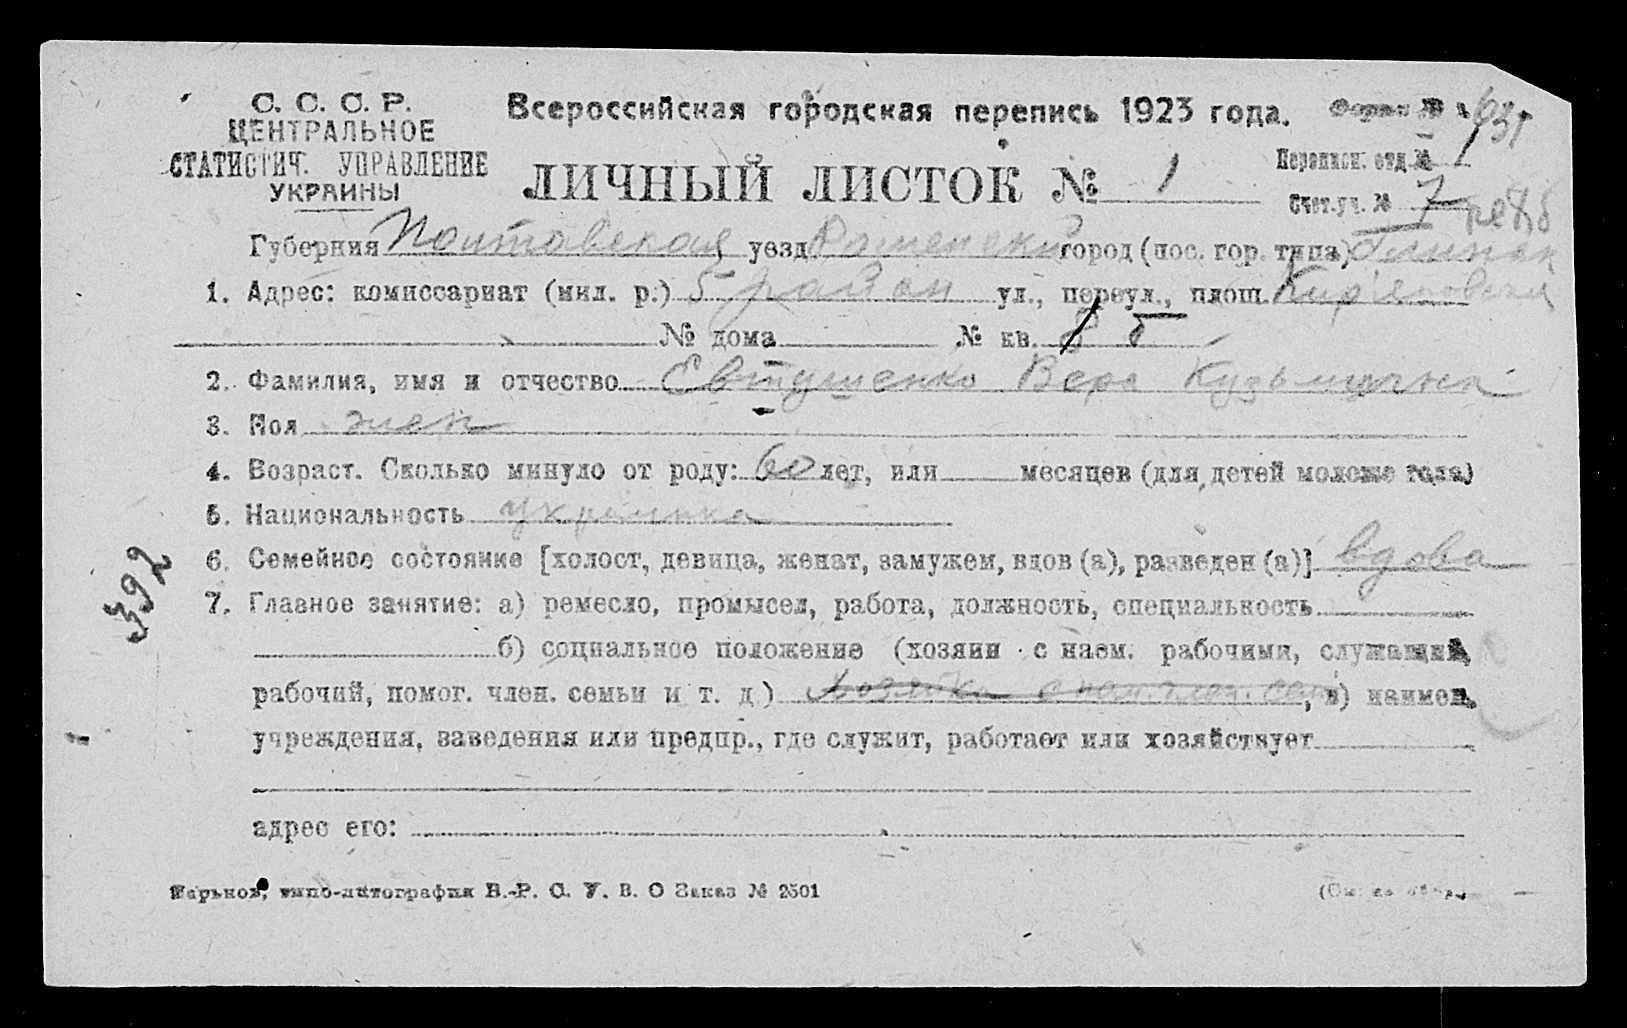 С. С. С. Р.
ЦЕНТРАЛЬНОЕ
СТАТИСТИЧ. УПРАВЛЕНИЕ
УКРАИНЫ
Всероссийская городская перепись 1923 года.
Форма №
ЛИЧНЫЙ ЛИСТОК № 1
Переписн. отд. № 1
Счет. уч. № 7
Губерния Полтавская уезд Роменский город (пос. гор. типа) Глинск
1. Адрес: комиссариат (мил. р.) 5 район ул., переул., площ.
№ дома № кв. 8 5
2. Фамилия, имя и отчество Евтушенко Вера Кузьминична
3. Пол жен
4. Возраст. Сколько минуло от роду: 60 лет, или месяцев (для детей моложе года)
5. Национальность украинка
6. Семейное состояние [холост, девица, женат, замужем, вдов (а), разведен (а)] вдова
7. Главное занятие: а) ремесло, промысел, работа, должность, специальность
б) социальное положение (хозяин с наем. рабочими, служащий,
рабочий, помог. член. семьи и т. д.) хозяйка с пом. член. сем, в) наимен.
учреждения, заведения или предпр., где служит, работает или хозяйствует
адрес его:
Харьков, типо-литография В.-Р. С. У. В. О Заказ № 2501
(См. на обор.
392